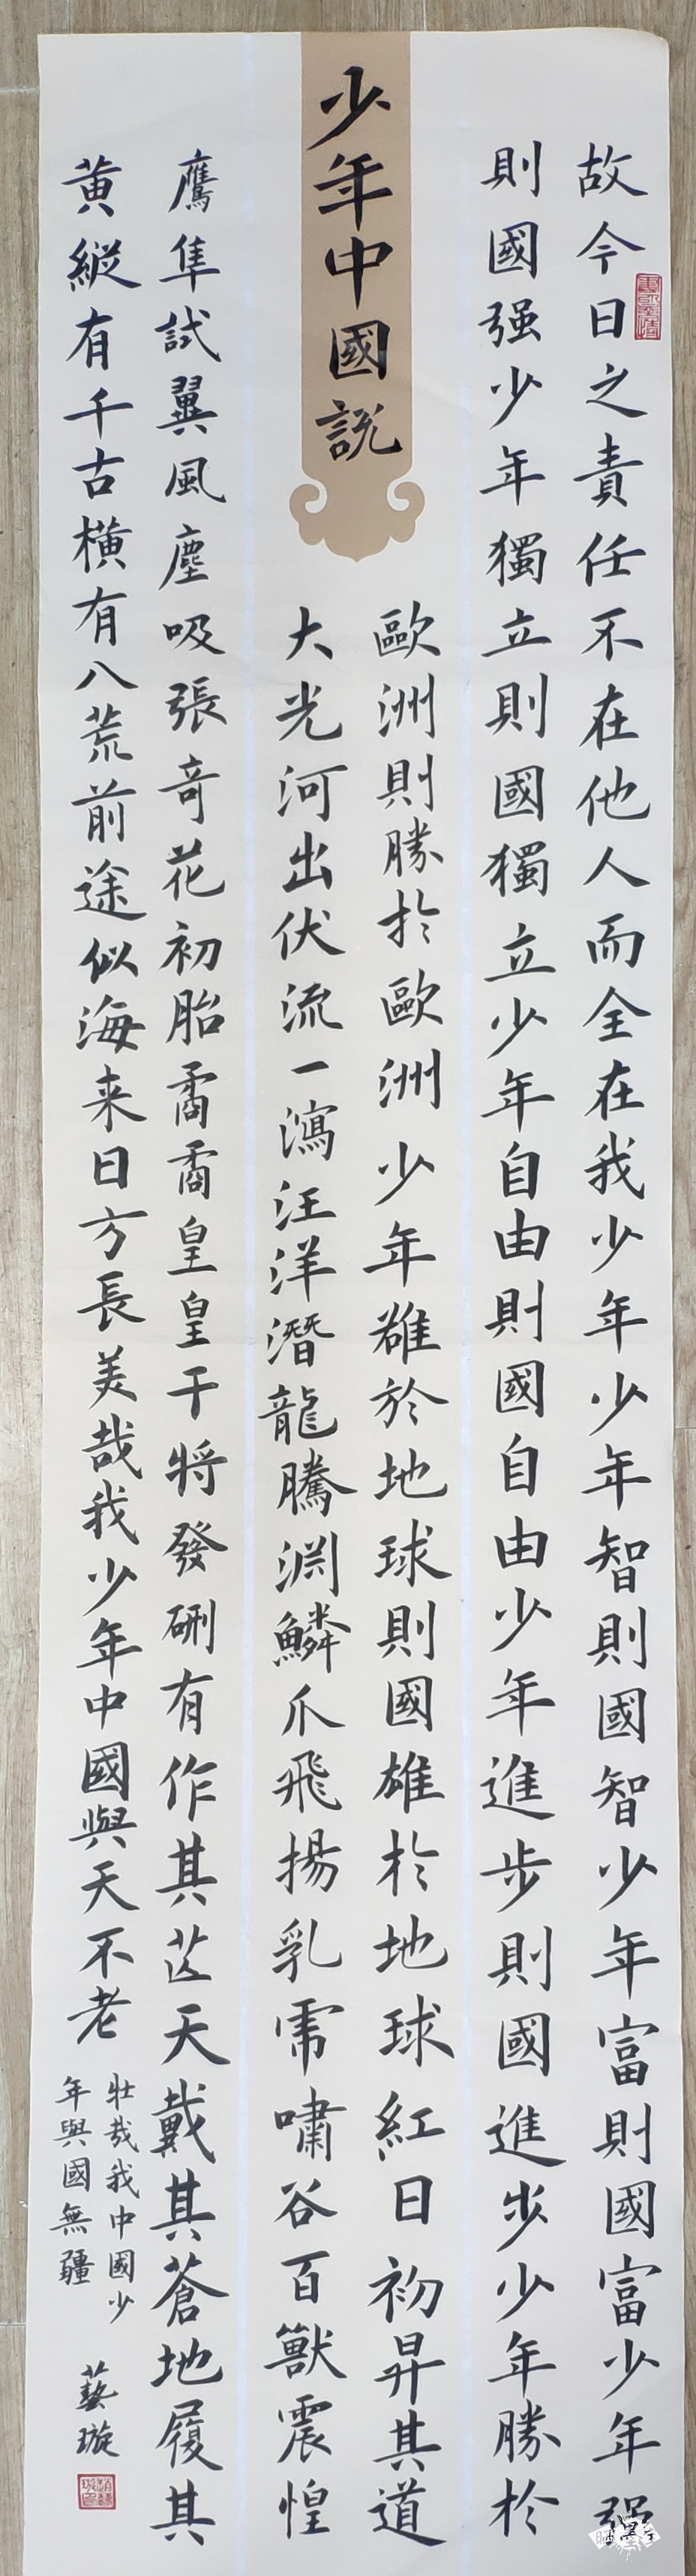 少年中國説
故今日之責任不在他人而全在我少年少年智則國智少年富則國富少年强
則國强少年獨立則國獨立少年自由則國自由少年進步則國進步少年勝於
歐洲則勝於歐洲少年雄於地球則國雄於地球紅日初昇其道
大光河出伏流一瀉汪洋潛龍騰淵鱗爪飛揚乳虎嘯谷百獸震惶
鷹隼試翼風塵吸張奇花初胎矞矞皇皇干將發硎有作其芒天戴其蒼地履其
黄縱有千古横有八荒前途似海来日方長美哉我少年中國與天不老
壮哉我中國少
年與國無疆
藝璇